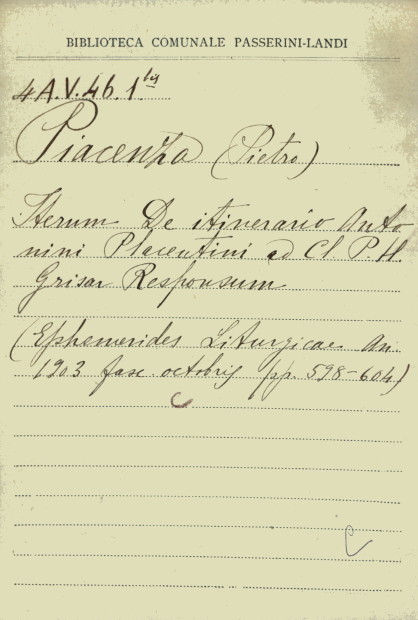 BIBLIOTECA COMUNALE PASSERINI-LANDI
4 A.V.46.1 ter
Piacenza (Pietro)
Iterum De itinerario Anto
nini Placentini ad Cl P. H.
Grisar Responsum
(Ephemerides Liturgicae An.
1903 fasc octobris pp. 598-604)
C